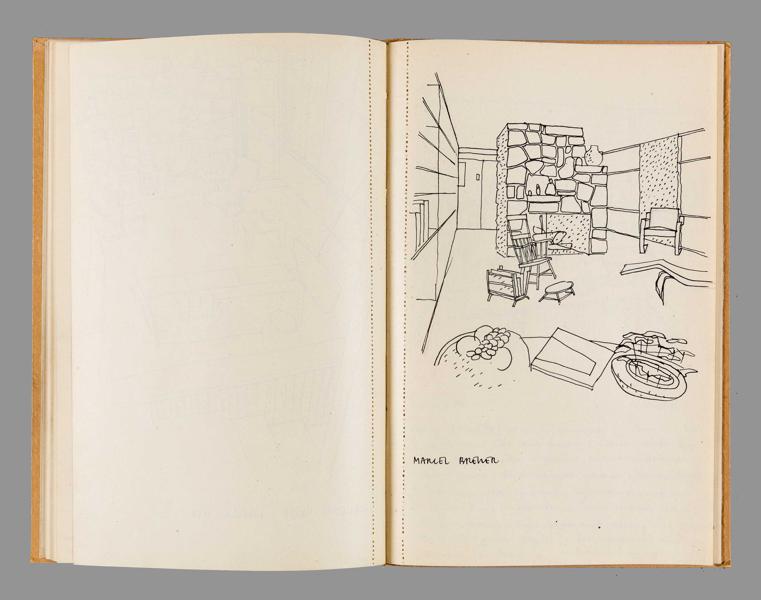 MARCEL BREUER